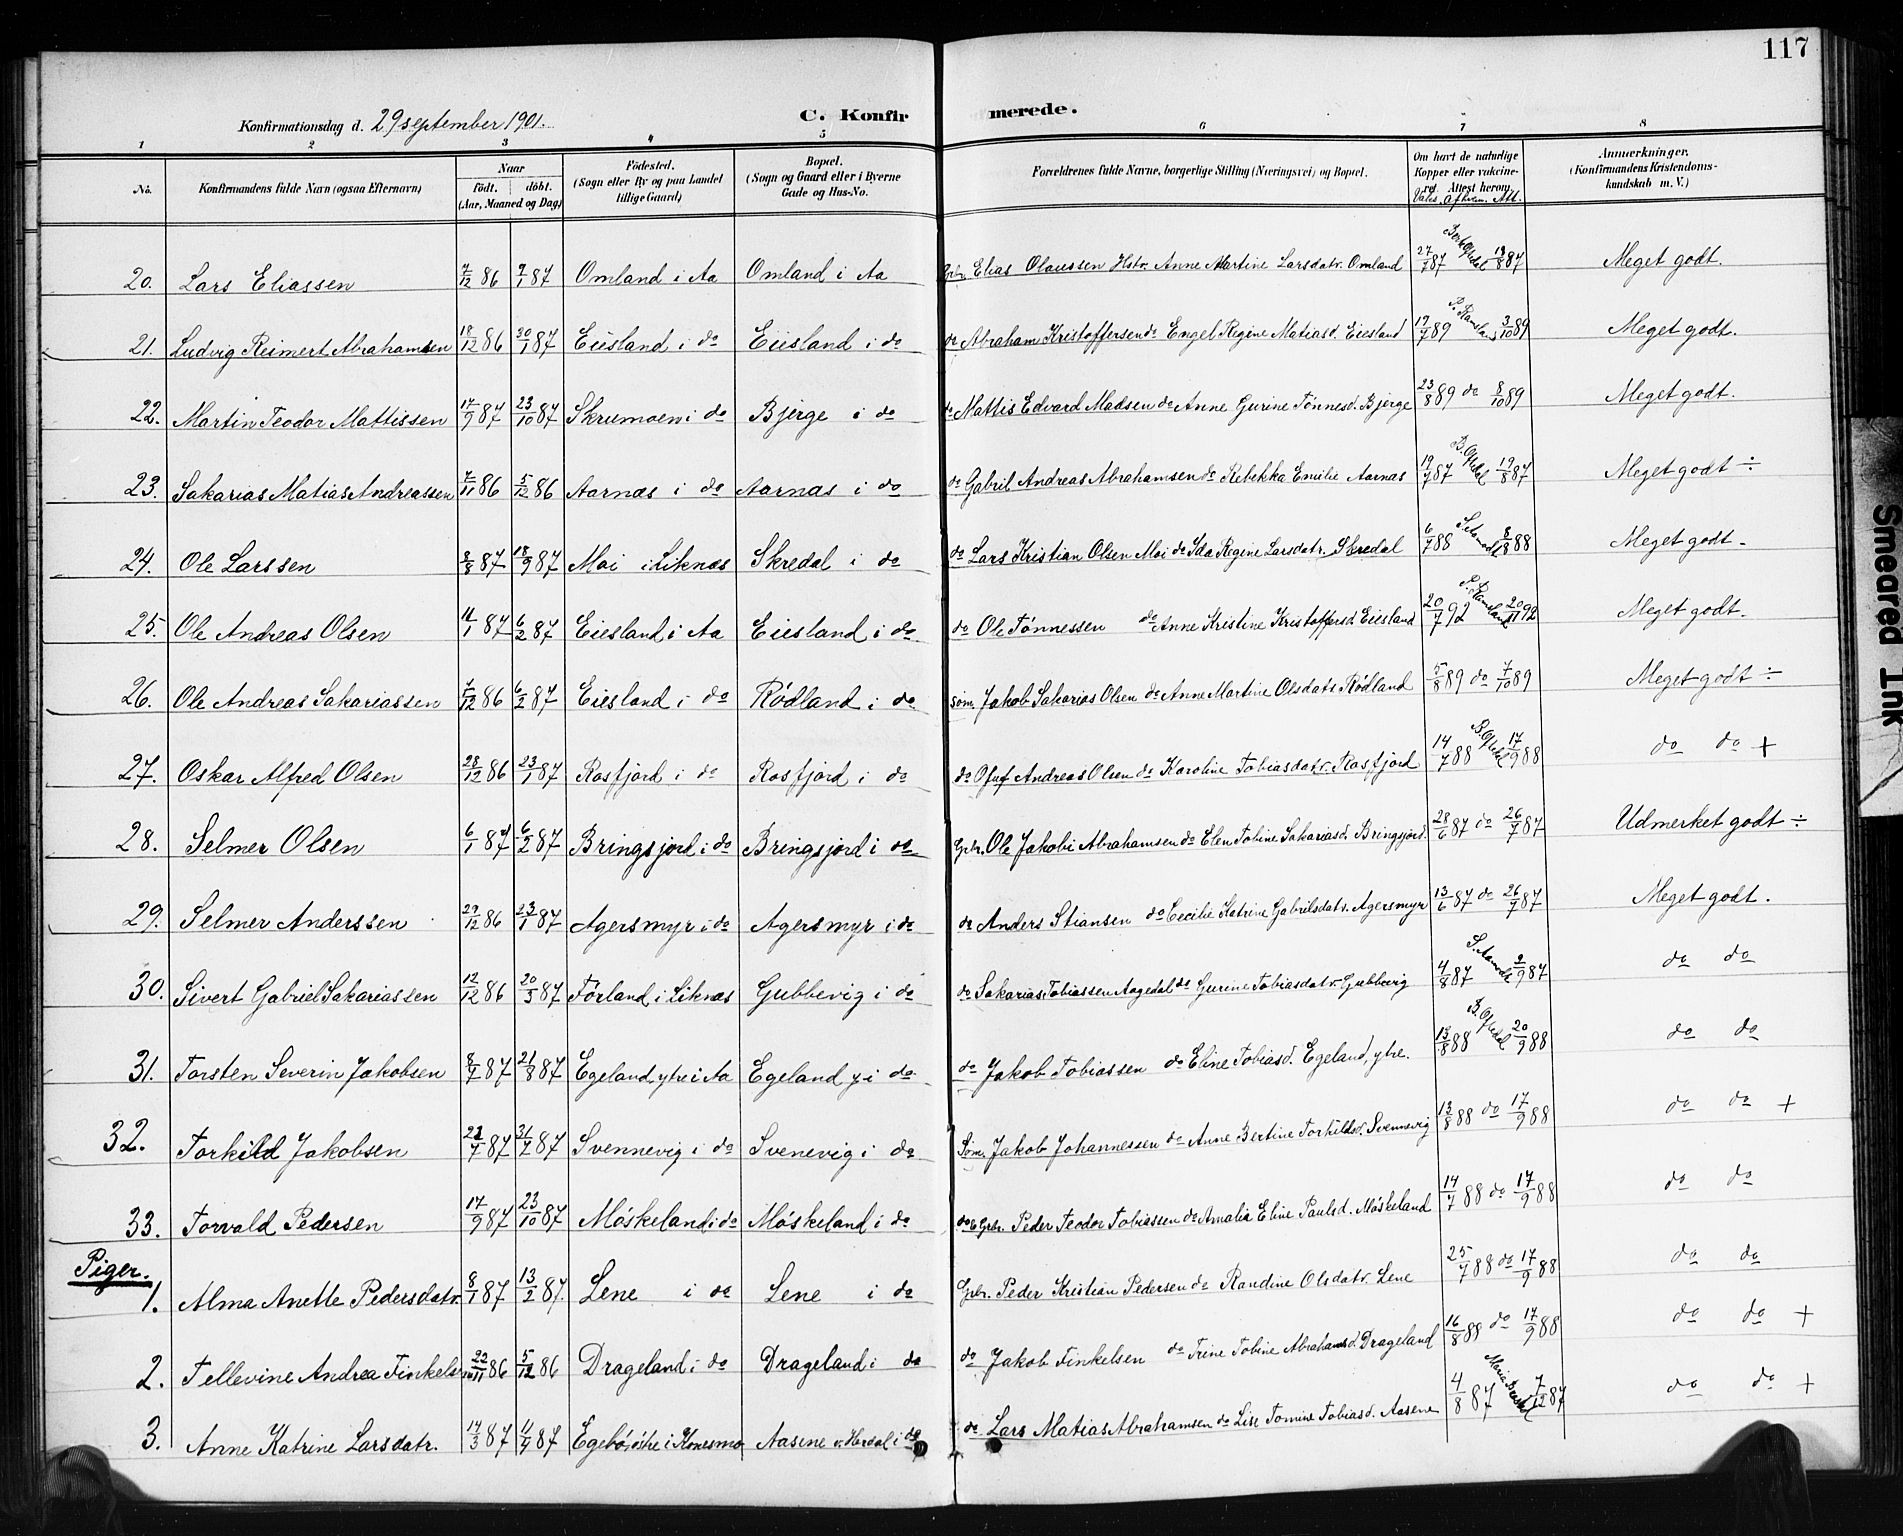 117
Konfirmationsdag d. 29 september 1901.
C. Konfirmerede.
1 2 3 4 5 6 7 8
No. Konfirmandens fulde Navn (ogsaa Efternavn) Naar født. døbt. (Aar, Maaned og Dag) Födested. (Sogn eller By og paa Landet tillige Gaard) Bopæl. (Sogn og Gaard eller i Byerne Gade og Hus-No. Forældrenes fulde Navne, borgerlige Stilling (Næringsvei) og Bopæl. Om havt de naturlige Kopper eller vaccineret. Attest herom. Anmerkninger. (Konfirmandens Kristendomskundskab m. V.)
20. Lars Eliassen 7/12 86 9/1 87 Omland i Aa Omland i Aa Gbr. Elias Olaussen Hstr. Anne Martine Larsdatr. Omland 27/7 87 13/8 87 Meget godt.
21. Ludvig Reimert Abrahamsen 18/12 86 30/1 87 Eiesland i do Eiesland i do do Abraham Kristoffersen do Engel Regine Matiasd. Eiesland 17/7 89 3/10 89 Meget godt.
22. Martin Teodor Mattissen 17/9 87 23/10 87 Skrumoen i do Bjerge i do do Mattis Edvard Madsen do Anne Gurine Tønnesd. Bjerge 23/8 89 do 8/10 89 Meget godt.
23. Sakarias Matias Andreassen 7/11 86 5/12 86 Aarnæs i do Aarnæs i do do Gabril Andreas Abrahamsen do Rebekka Emilie Aarnæs 19/7 87 19/8 87 Meget godt ÷
24. Ole Larssen 8/8 87 18/9 87 Moi i Liknæs Skredal i do do Lars Kristian Olsen Moi do Ida Regine Larsdatr. Skredal 6/7 88 8/8 88 Meget godt.
25. Ole Andreas Olsen 11/1 87 6/2 87 Eiesland i Aa Eiesland i do do Ole Tønnessen do Anne Kristine Kristoffersd. Eiesland 20/7 92 20/11 92 Meget godt.
26. Ole Andreas Sakariassen 7/12 86 6/2 87 Eiesland i do Rødland i do Søm. Jakob Sakarias Olsen do Anne Martine Olsdatr. Rødland 5/8 89 do 7/10 89 Meget godt ÷
27. Oskar Alfred Olsen 28/12 86 23/1 87 Rosfjord i do Rosfjord i do do Oluf Andreas Olsen do Karoline Tobiasdatr. Rosfjord 14/7 88 17/9 88 do do +
28. Selmer Olsen 6/1 87 6/2 87 Bringsjord i do Bringsjord i do Gbr. Ole Jakobi Abrahamsen do Elen Tobine Sakariasd. Bringsjord. 28/6 87 do 26/7 87 Udmerket godt ÷
29. Selmer Anderssen 29/12 86 23/1 87 Agersmyr i do Agersmyr i do do Anders Stiansen do Cecilie Katrine Gabrilsdatr. Agersmyr 13/6 87 do 26/7 87 Meget godt.
30. Sivert Gabriel Sakariassen 12/12 86 20/3 87 Førland i Liknæs Gubbevig i do do Sakarias Tobiassen Aagedal do Gurine Tobiasdatr. Gubbevig 4/8 87 2/9 87 do do
31. Torsten Severin Jakobsen 8/7 87 21/8 87 Egeland, ytre i Aa Egeland y. i do do Jakob Tobiassen do Eline Tobiasd. Egeland, ytre. 13/8 88 20/9 88 do do
32. Torkild Jakobsen 87 31/7 87 Svennevig i do Svenevig i do Søm. Jakob Johannessen do Anne Bertine Torkildsd. Svennevig 13/8 88 do 17/9 88 do do +
33. Torvald Pedersen 17/9 87 23/10 87 Møskeland i do Møskeland i do do & Gbr. Peder Teodor Tobiassen do Amalia Eline Paulsd. Møskeland 14/7 88 do 17/9 88 do do
Piger.
1. Alma Anette Pedersdatr. 8/1 87 13/2 87. Lene i do Lene i do Gbr. Peder Kristian Pedersen do Randine Olsdatr. Lene 25/7 88 do 17/9 88 do do
2. Tellevine Andrea Finkels 86 5/12 86 Drageland i do Drageland i do do Jakob Finkelsen do Trine Tobine Abrahamsd. Drageland 16/8 88 do 17/9 88 do do +
3. Anne Katrine Larsdatr. 14/3 87 11/4 87 Egebø, østre i Konesmo Aasene v. Herdal i do do Lars Matias Abrahamsen do Lise Tomine Tobiasd. Aasene 4/8 87 7/12 87 do do +
Smeared Ink